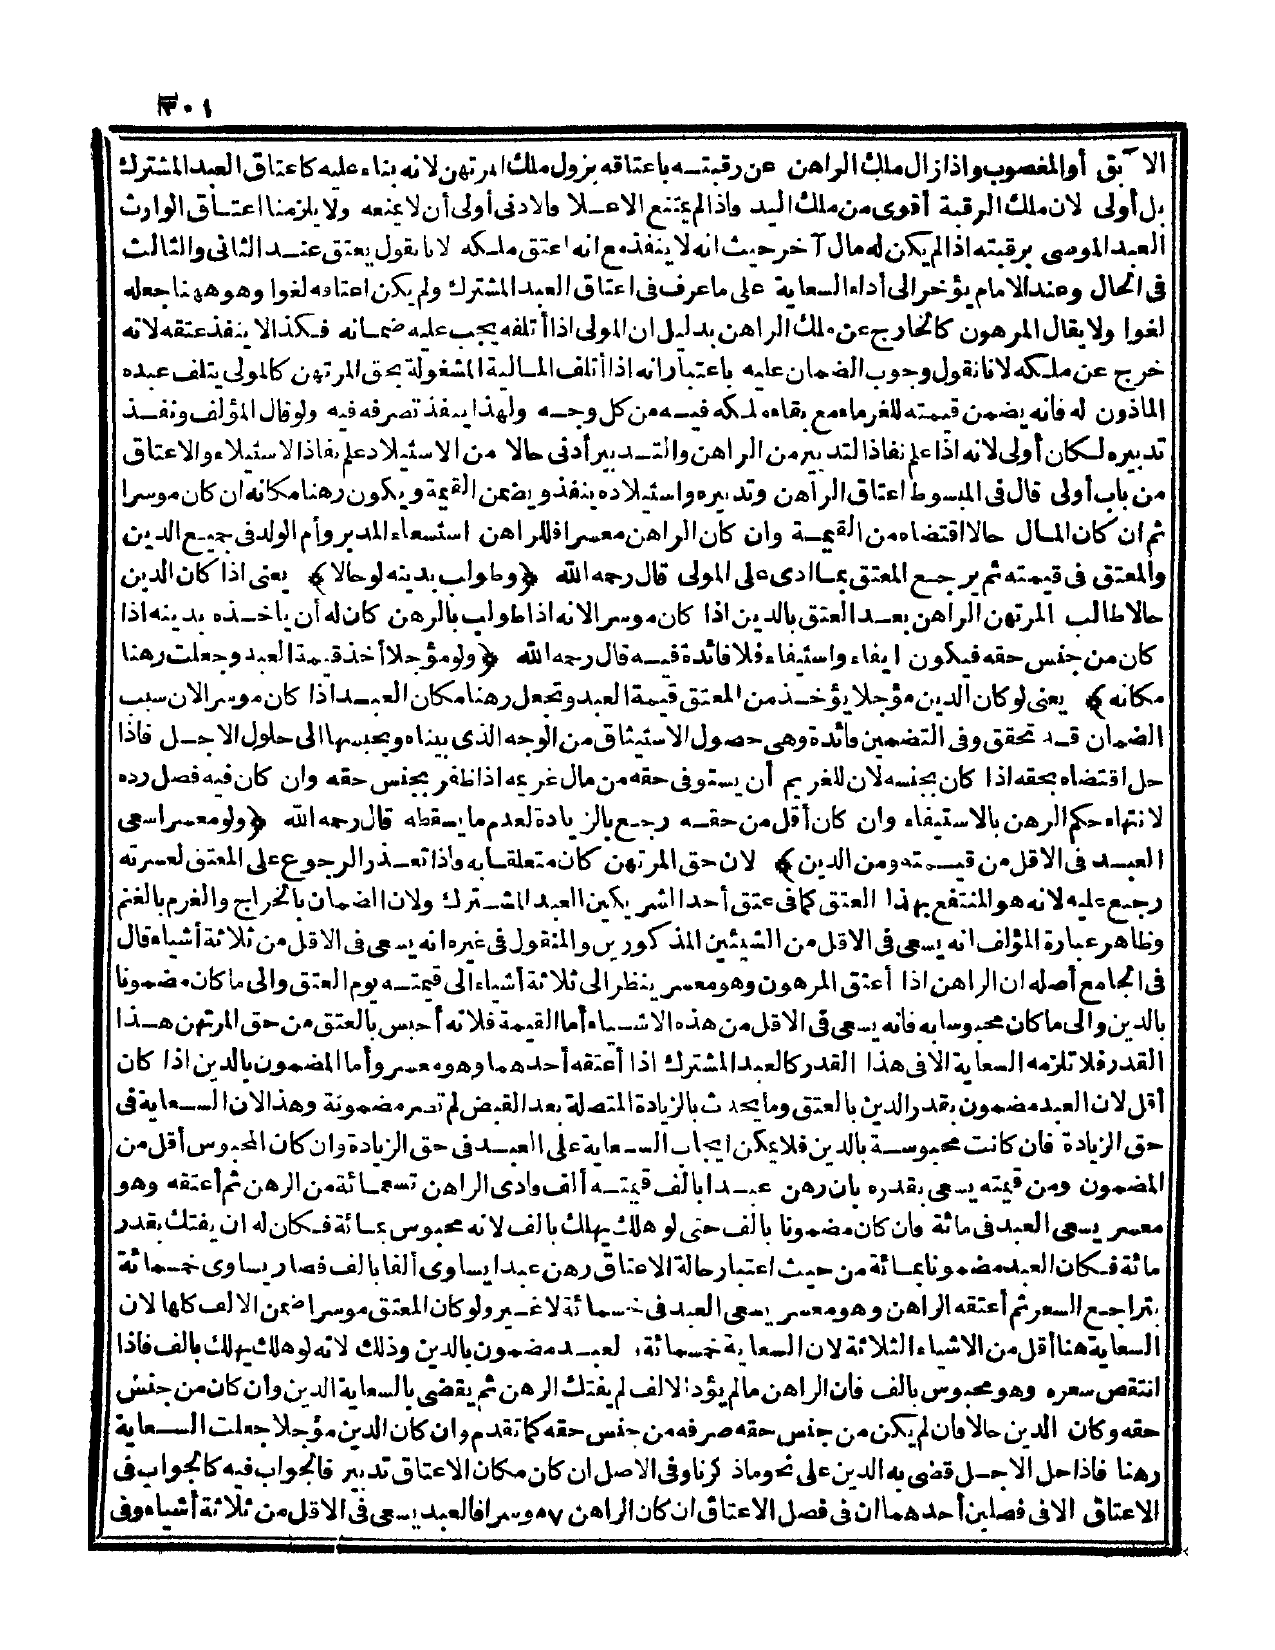 ٣٠١
الآبق أو المغصوب واذا زال ملك الراهن عن رقبته باعتاقه يزول ملك المرتهن لانه بناء عليه كاعتاق العبد المشترك
بل أولى لان ملك الرقبة أقوى من ملك اليد واذا لم يمتنع الاعلا فالادنى أولى أن لا يمنعه ولا يلزمنا اعتاق الوارث
العبد الموصى برقبته اذا لم يكن له مال آخر حيث انه لا ينفذ مع انه اعتق ملكه لانا نقول يعتق عند الثانى والثالث
فى الحال وعند الامام يؤخر الى أداء السعاية على ما عرف فى اعتاق العبد المشترك ولم يكن اعتاقه لغوا وهو ههنا جعله
لغوا ولا يقال المرهون كالخارج عن ملك الراهن بدليل ان المولى اذا أتلفه يجب عليه ضمانه فكذا لا ينفذ عتقه لانه
خرج عن ملكه لانا نقول وجوب الضمان عليه باعتبار انه اذا أتلف المالية المشغولة بحق المرتهن كالمولى يتلف عبده
الماذون له فانه يضمن قيمته للغرماء مع بقاء ملكه فيه من كل وجه ولهذا ينفذ تصرفه فيه ولو قال المؤلف ونفذ
تدبيره لكان أولى لانه اذا علم نفاذ التدبير من الراهن والتدبير أدنى حالا من الاستيلاد علم نفاذ الاستيلاء والاعتاق
من باب أولى قال فى المبسوط اعتاق الراهن وتدبيره واستيلاده ينفذ ويضمن القيمة ويكون رهنا مكانه ان كان موسرا
ثم ان كان المال حالا اقتضاه من القيمة وان كان الراهن معسرا فللراهن استسعاء المدبر وأم الولد فى جميع الدين
والمعتق فى قيمته ثم يرجع المعتق بما ادى على المولى قال رحمه الله ﴿وطولب بدينه لو حالا﴾ يعنى اذا كان الدين
حالا طالب المرتهن الراهن بعد العتق بالدين اذا كان موسرا لانه اذا طولب بالرهن كان له أن ياخذه بدينه اذا
كان من جنس حقه فيكون ايفاء واستيفاء فلا فائدة فيه قال رحمه الله ﴿ولو مؤجلا أخذ قيمة العبد وجعلت رهنا
مكانه﴾ يعنى لو كان الدين مؤجلا يؤخذ من المعتق قيمة العبد وتجعل رهنا مكان العبد اذا كان موسرا لان سبب
الضمان قد تحقق وفى التضمين فائدة وهى حصول الاستيثاق من الوجه الذى بيناه ويحبسها الى حلول الاجل فاذا
حل اقتضاه بحقه اذا كان بجنسه لان للغريم أن يستوفى حقه من مال غريمه اذا ظفر بجنس حقه وان كان فيه فصل رده
لانتهاء حكم الرهن بالاستيفاء وان كان أقل من حقه رجع بالزيادة لعدم ما يسقطه قال رحمه الله ﴿ولو معسرا سعى
العبد فى الاقل من قيمته ومن الدين﴾ لان حق المرتهن كان متعلقا به واذا تعذر الرجوع على المعتق لعسرته
رجع عليه لانه هو المنتفع بهذا العتق كما فى عتق أحد الشريكين العبد المشترك ولان الضمان بالخراج والغرم بالغنم
وظاهر عبارة المؤلف انه يسعى فى الاقل من الشيئين المذكورين والمنقول فى غيره انه يسعى فى الاقل من ثلاثة أشياء قال
فى الجامع أصله ان الراهن اذا أعتق المرهون وهو معسر ينظر الى ثلاثة أشياء الى قيمته يوم العتق والى ما كان مضمونا
بالدين والى ما كان محبوسا به فانه يسعى فى الاقل من هذه الاشياء أما القيمة فلانه أحبس بالعتق من حق المرتهن هذا
القدر فلا تلزمه السعاية الا فى هذا القدر كالعبد المشترك اذا أعتقه أحدهما وهو معسر وأما المضمون بالدين اذا كان
أقل لان العبد مضمون بقدر الدين بالعتق وما يحدث بالزيادة المتصلة بعد القبض لم تصر مضمونة وهذا لان السعاية فى
حق الزيادة فان كانت محبوسة بالدين فلا يمكن ايجاب السعاية على العبد فى حق الزيادة وان كان المحبوس أقل من
المضمون ومن قيمته يسعى بقدره بان رهن عبدا بالف قيمته ألف وادى الراهن تسعمائة من الرهن ثم أعتقه وهو
معسر يسعى العبد فى مائة فان كان مضمونا بالف حتى لو هلك يهلك بالف لانه محبوس بمائة فكان له ان يفتك بقدر
مائة فكان العبد مضمونا بمائة من حيث اعتبار حالة الاعتاق رهن عبدا يساوى ألفا بالف فصار يساوى خمسمائة
بتراجع السعر ثم أعتقه الراهن وهو معسر يسعى العبد فى خمسمائة لا غير ولو كان المعتق موسرا ضمن الالف كلها لان
السعاية هنا أقل من الاشياء الثلاثة لان السعاية خمسمائة، لعبد مضمون بالدين وذلك لانه لو هلك يهلك بالف فاذا
انتقص سعره وهو محبوس بالف فان الراهن ما لم يؤد الالف لم يفتك الرهن ثم يقضى بالسعاية الدين وان كان من جنس
حقه وكان الدين حالا فان لم يكن من جنس حقه صرفه من جنس حقه كما تقدم وان كان الدين مؤجلا جعلت السعاية
رهنا فاذا حل الاجل قضى به الدين على نحو ما ذكرنا وفى الاصل ان كان مكان الاعتاق تدبير فالجواب فيه كالجواب فى
الاعتاق الا فى فصلين أحدهما ان فى فصل الاعتاق ان كان الراهن موسرا فالعبد يسعى فى الاقل من ثلاثة أشياء وفى